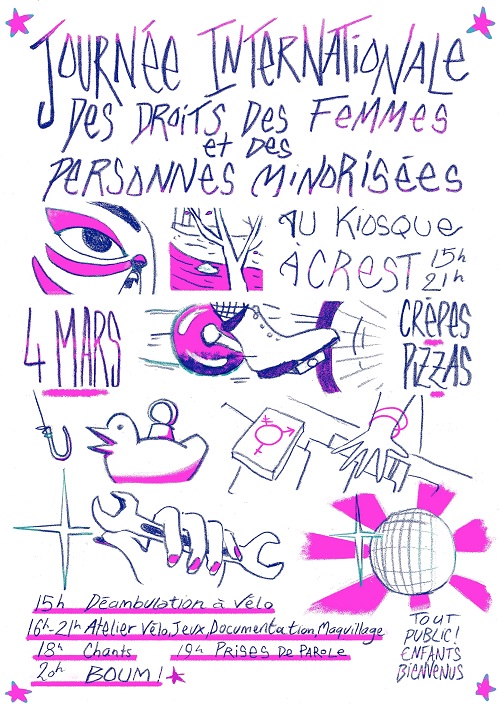 JOURNÉE INTERNATIONALE
DES DROITS DES FEMMES
et DES
PERSONNES MINORISÉES
AU KIOSQUE
À CREST 15h
21h
4 MARS
CRÊPES
PIZZAS
15h Déambulation à vélo
16h-21h Atelier Vélo, Jeux, Documentation, Maquillage
18h Chants 19h PRISES DE PAROLE
20h BOUM!
TOUT
PUBLIC!
ENFANTS
BIENVENUS